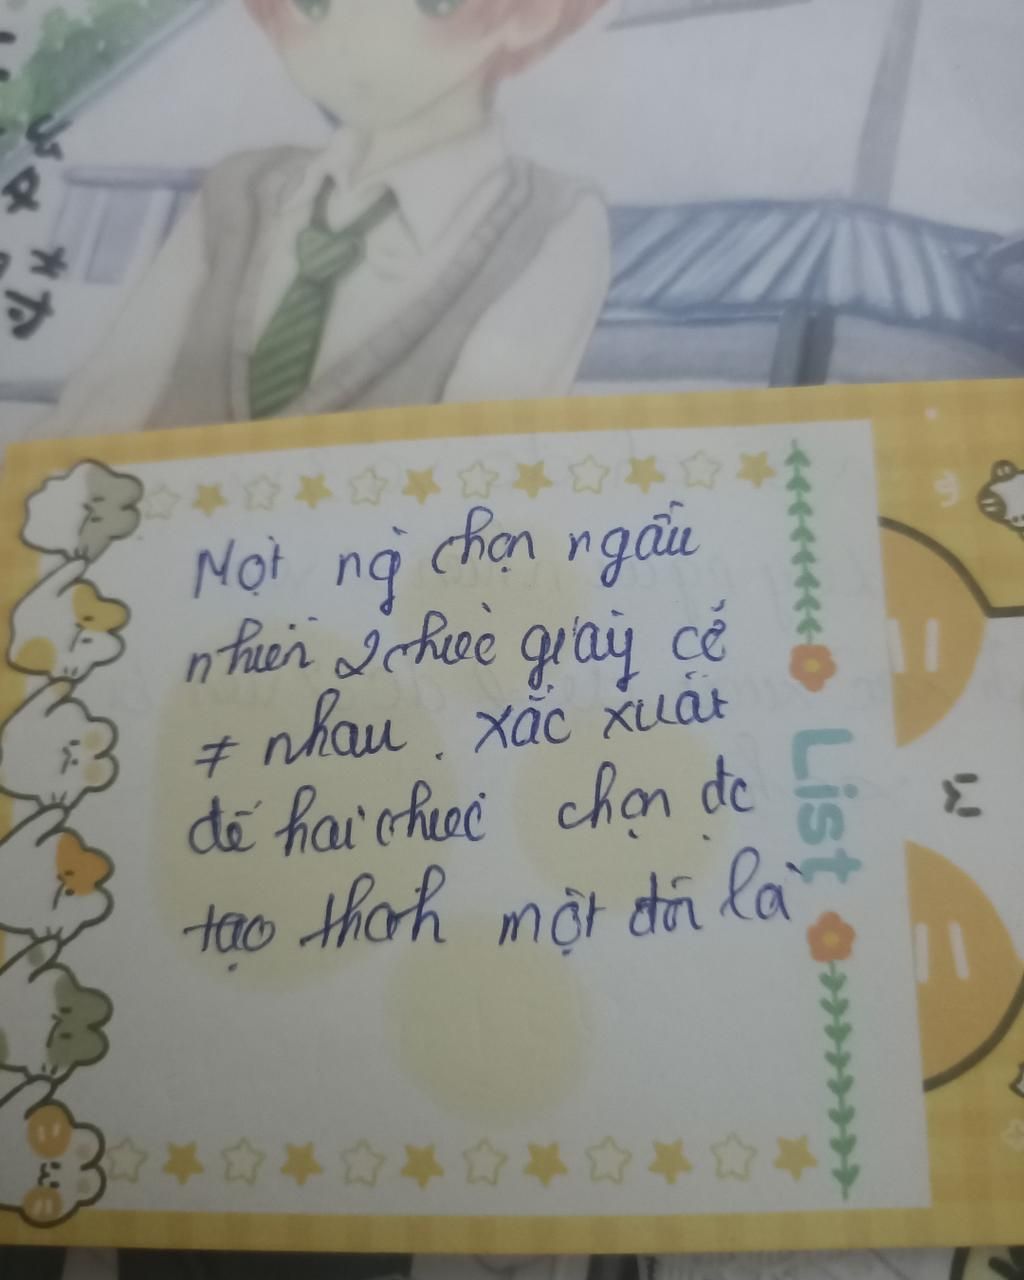 Một ng` chọn ngẫu
nhiên 2 chiếc giày cỡ
≠ nhau. xắc xuất
để hai chiếc chọn đc
tạo thành một đôi là
List